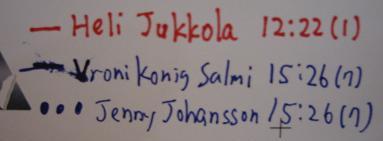 — Heli Jukkola 12:22 (1)
— Vroni König Salmi 15:26 (7)
••• Jenny Johansson 15:26 (7)